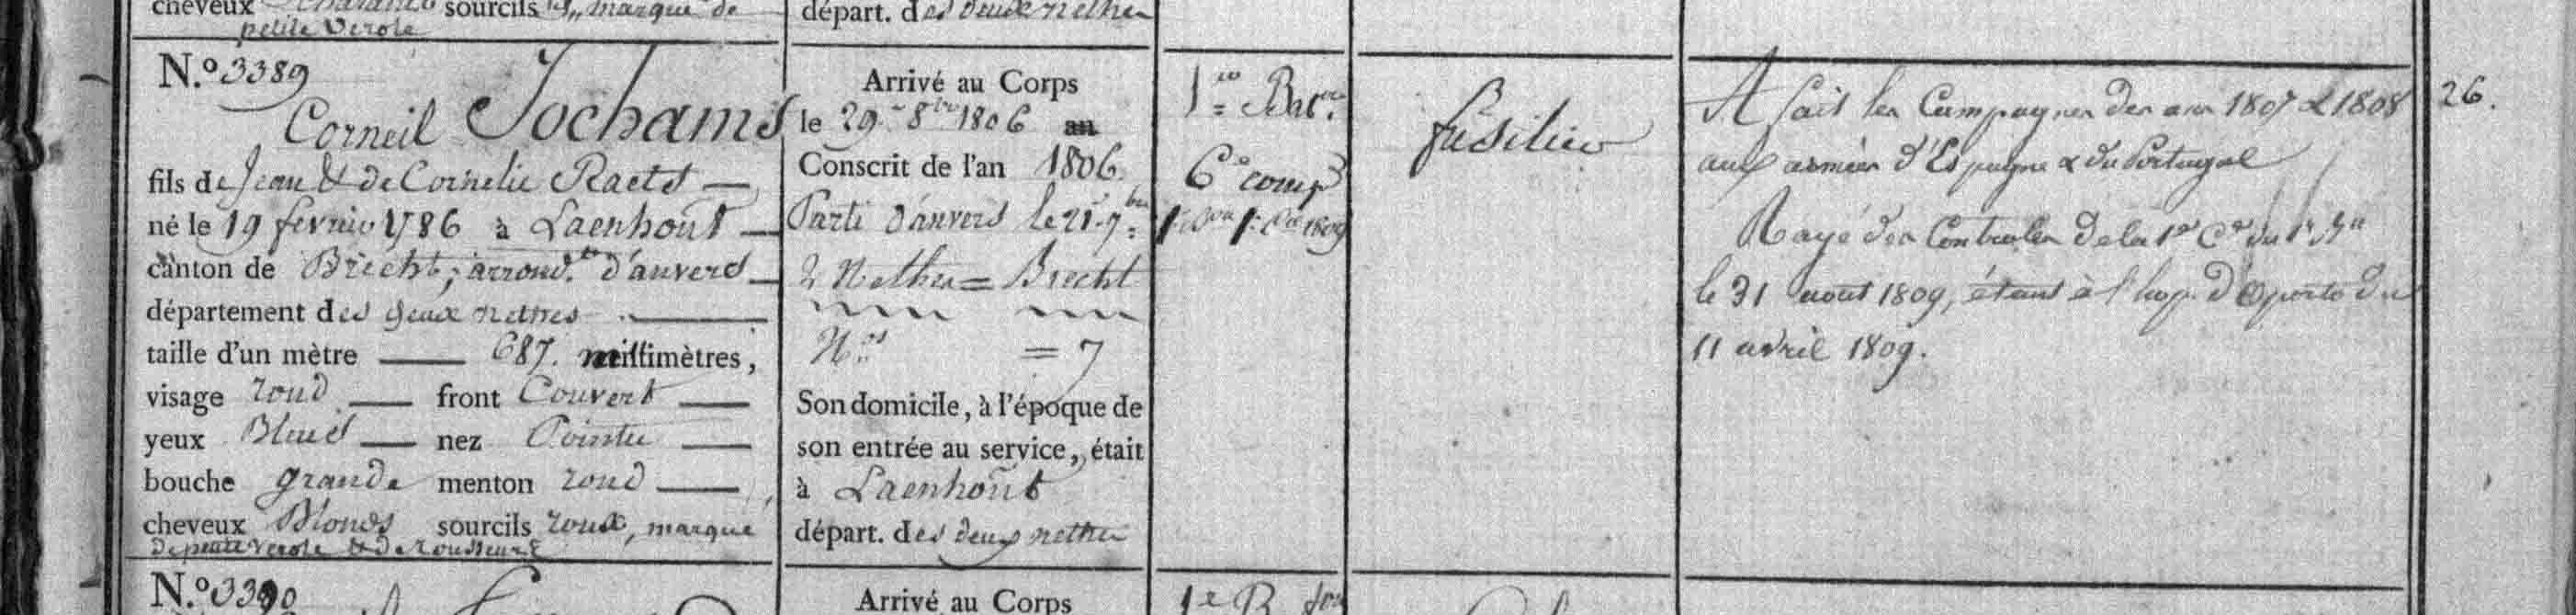 cheveux sourcils marque de
petite Verole
départ. des deux nethes
N.º 3389
Corneil Jochams
fils de Jean & de Cornelie Raets
né le 19 fevrier 1786 à Laenhout
canton de Brecht, arrond.t d'anvers
département des deux nethes
taille d'un mètre 687. millimètres,
visage rond front Couvert
yeux Bleus nez Pointu
bouche grande menton rond
cheveux Blonds sourcils roux, marqué
de petite verole & de rousseurs
Arrivé au Corps
le 29 8bre 1806 au
Conscrit de l'an 1806
Parti d'anvers le 21 7bre
2 Nethes = Brecht
N.os = 7
Son domicile, à l'époque de
son entrée au service, était
à Laenhout
départ. des deux nethes
1er Baton
6e comp
1809
fusilier
A fait les Campagnes des ans 1807 & 1808
aux armées d'Espagne & du Portugal
Rayé des Controles de la 1re Cie du 1r Bn
le 31 aout 1809, étant à l'hop. d'Oporto du
11 avril 1809.
26.
N.º 3390
Arrivé au Corps
1e B